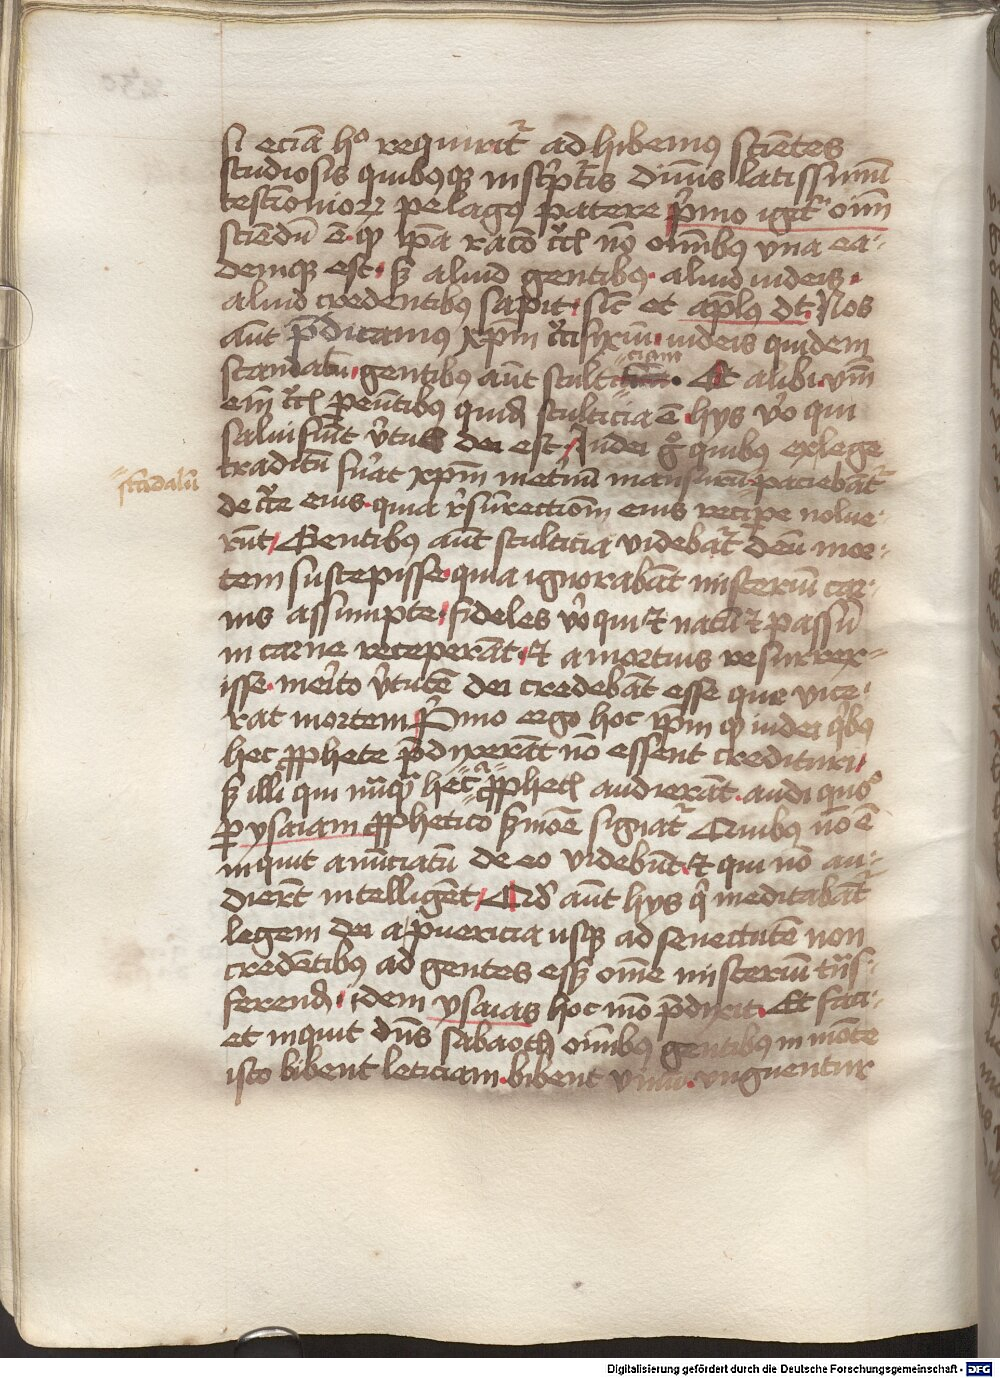 si eciā hͦ requirit᷑ adhibemꝰ sciētes
studiosis quibusqꝫ in sc̓ptis diuīs latissimū
testīoniorꝝ pelagꝰ patere p̓mo igit᷑ oīm
sciēdū ē qꝙ ip̄a racō cͨcꝭ nō omībꝰ vna ea-
demqꝫ est. sꝫ aliud gentibꝰ. aliud iudeis.
aliud credentibꝰ sapit. sic̄ et apl̄ꝰ dt. Nos
aūt p̄dicamꝰ xp̄m cͨcifixū. iudeis quidem
scandalū gentibꝰ aūt stulticiam. Et alibi. vm̄
em̄ cͨcꝭ peūtibꝰ quidē stulticia ē hys v̓o qui
salui fiūt v̓tus dei est Iudei gͦ quibꝰ ex lege
traditū fu̓at xp̄m inet̓nū mansurū paciebāt᷑
scādalū
de cͨce eius. quia r̓surrectionē eius recipe nolue-
rūt Gentibꝰ aūt stulticia videbat᷑ deū mor-
tem suscepisse. quia ignorabāt misteriū car-
nis assumpte fideles v̓o qui et natū et passū
in carne receperāt. et a mortuis resurrex-
isse. me̓ito v̓tutē dei credebāt esse que vice-
rat mortem P̓mo ergo hoc ip̄m qꝙ iudei q̓bꝰ
hec ꝓphete p̄dixerāt nō essent credituri
sꝫ illi qui nūqͣ hec a ꝓphetꝭ audierāt. audi quͦ
ꝑ ysaiam ꝓphetico sꝰmōe signat᷑ Quibꝰ nō ē
inquit anūciatū de eo videbūt. et qui nō au-
dierūt intelligēt Qd̓ aūt hys q̓ meditabāt᷑
legem dei a puericia usqꝫ ad senectutē non
credētibꝰ ad gentes essꝫ oīne misteriū trāns-
ferend̄. idem ysaias hoc mō p̄dixit. Et faci-
et inquit dn̄s sabaoth om̄ibꝰ gentibꝰ in mōte
isto bibent leticiam. bibent vinū. vnguentur
Digitalisierung gefördert durch die Deutsche Forschungsgemeinschaft - DFG